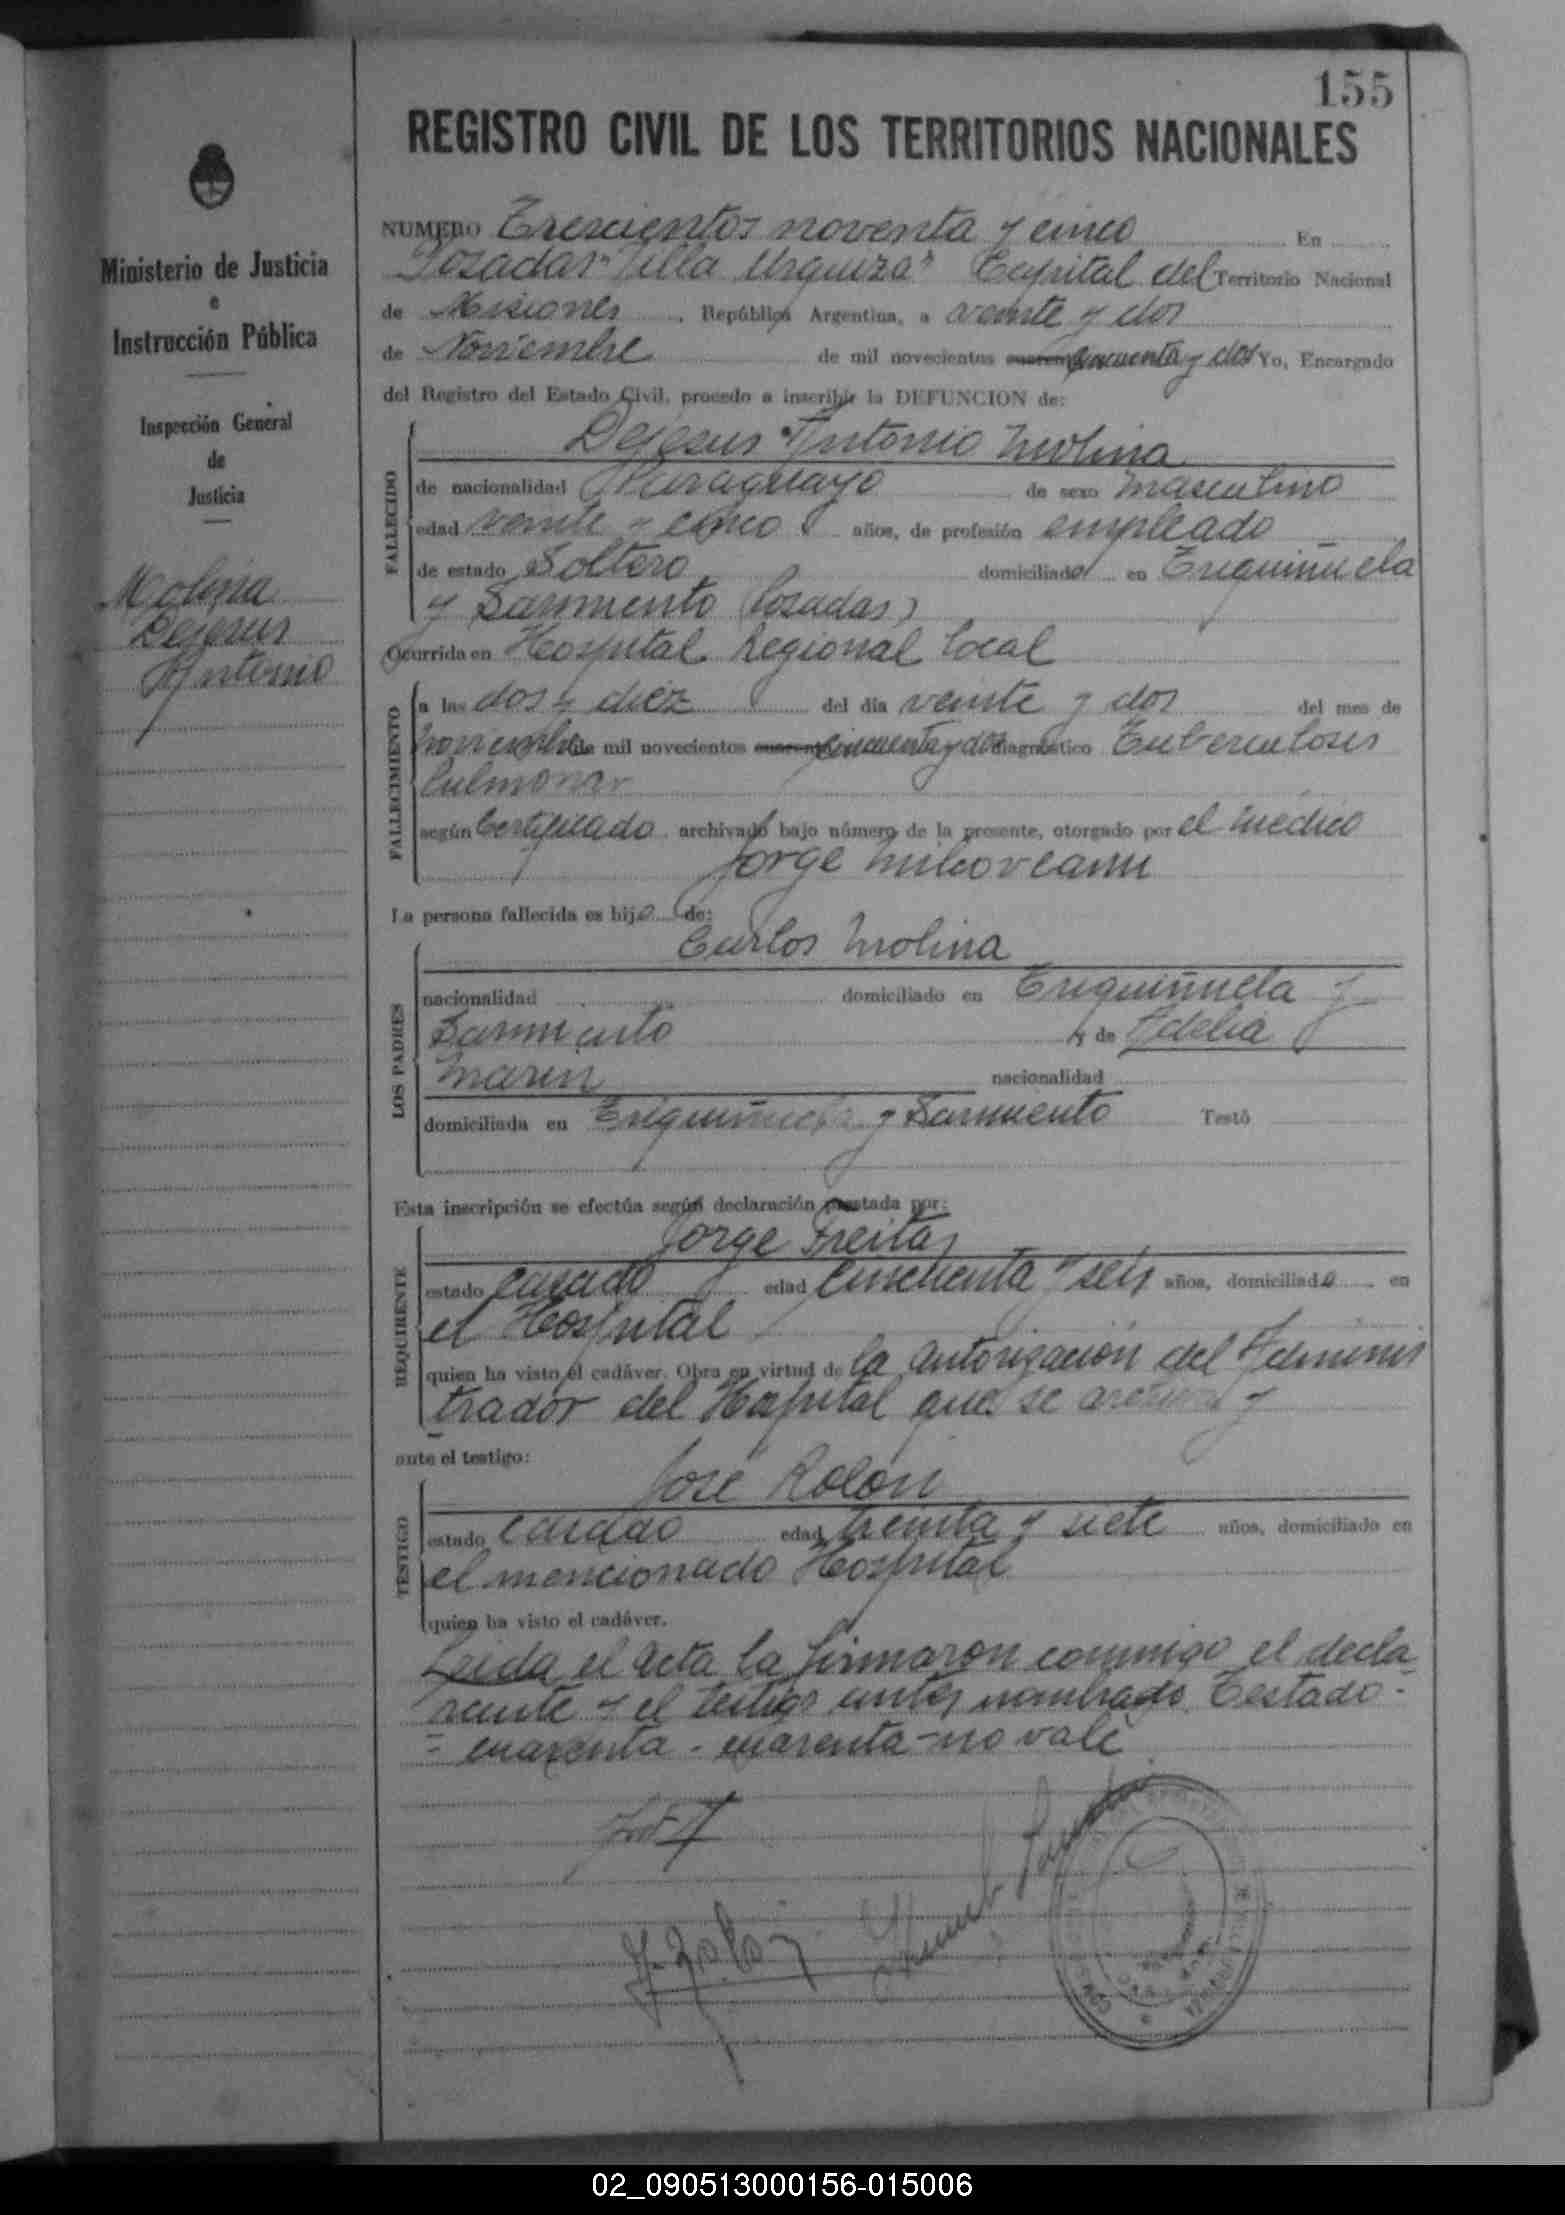 155
REGISTRO CIVIL DE LOS TERRITORIOS NACIONALES
Ministerio de Justicia
e
Instrucción Pública
Inspección General
de
Justicia
Molina
Dejesus
Antonio
NUMERO Trescientos noventa y cinco En
Posadas "Villa Urquiza" Capital del Territorio Nacional
de Misiones, República Argentina, a veinte y dos
de Noviembre de mil novecientos cincuenta y dos Yo, Encargado
del Registro del Estado Civil, procedo a inscribir la DEFUNCION de:
FALLECIDO
Dejesus Antonio Molina
de nacionalidad Paraguayo de sexo masculino
edad veinte y cinco años, de profesión empleado
de estado Soltero domiciliado en Triguiñuela
y Sarmiento (Posadas)
Ocurrida en Hospital Regional Local
FALLECIMIENTO
a las dos y diez del día veinte y dos del mes de
noviembre de mil novecientos cincuenta y dos diagnóstico Tuberculosis
Pulmonar
según Certificado archivado bajo número de la presente, otorgado por el médico
Jorge
La persona fallecida es hijo de:
LOS PADRES
Carlos Molina
nacionalidad domiciliado en Triguiñuela y
Sarmiento y de Adelia
Marin nacionalidad
domiciliada en Triguiñuela y Sarmiento Testó
Esta inscripción se efectúa según declaración prestada por:
REQUIRENTE
Jorge Freitas
estado casado edad cincuenta y seis años, domiciliado en
el Hospital
quien ha visto el cadáver. Obra en virtud de la autorización del Adminis
trador del Hospital que se archiva y
ante el testigo:
TESTIGO
José Rolón
estado casado edad treinta y siete años, domiciliado en
el mencionado Hospital
quien ha visto el cadáver.
Leida el acta la firmaron conmigo el decla
rante y el testigo antes nombrado. Testado-
= cuarenta - cuarenta - no vale
02_090513000156-015006